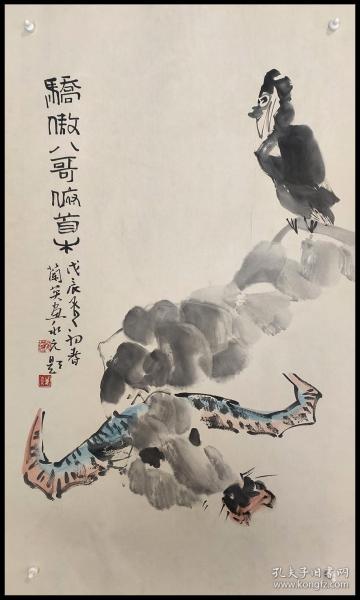 驕傲八哥俯首木
戊辰年初春
蘭英畫永元題
孔夫子旧书网
www.kongfz.com